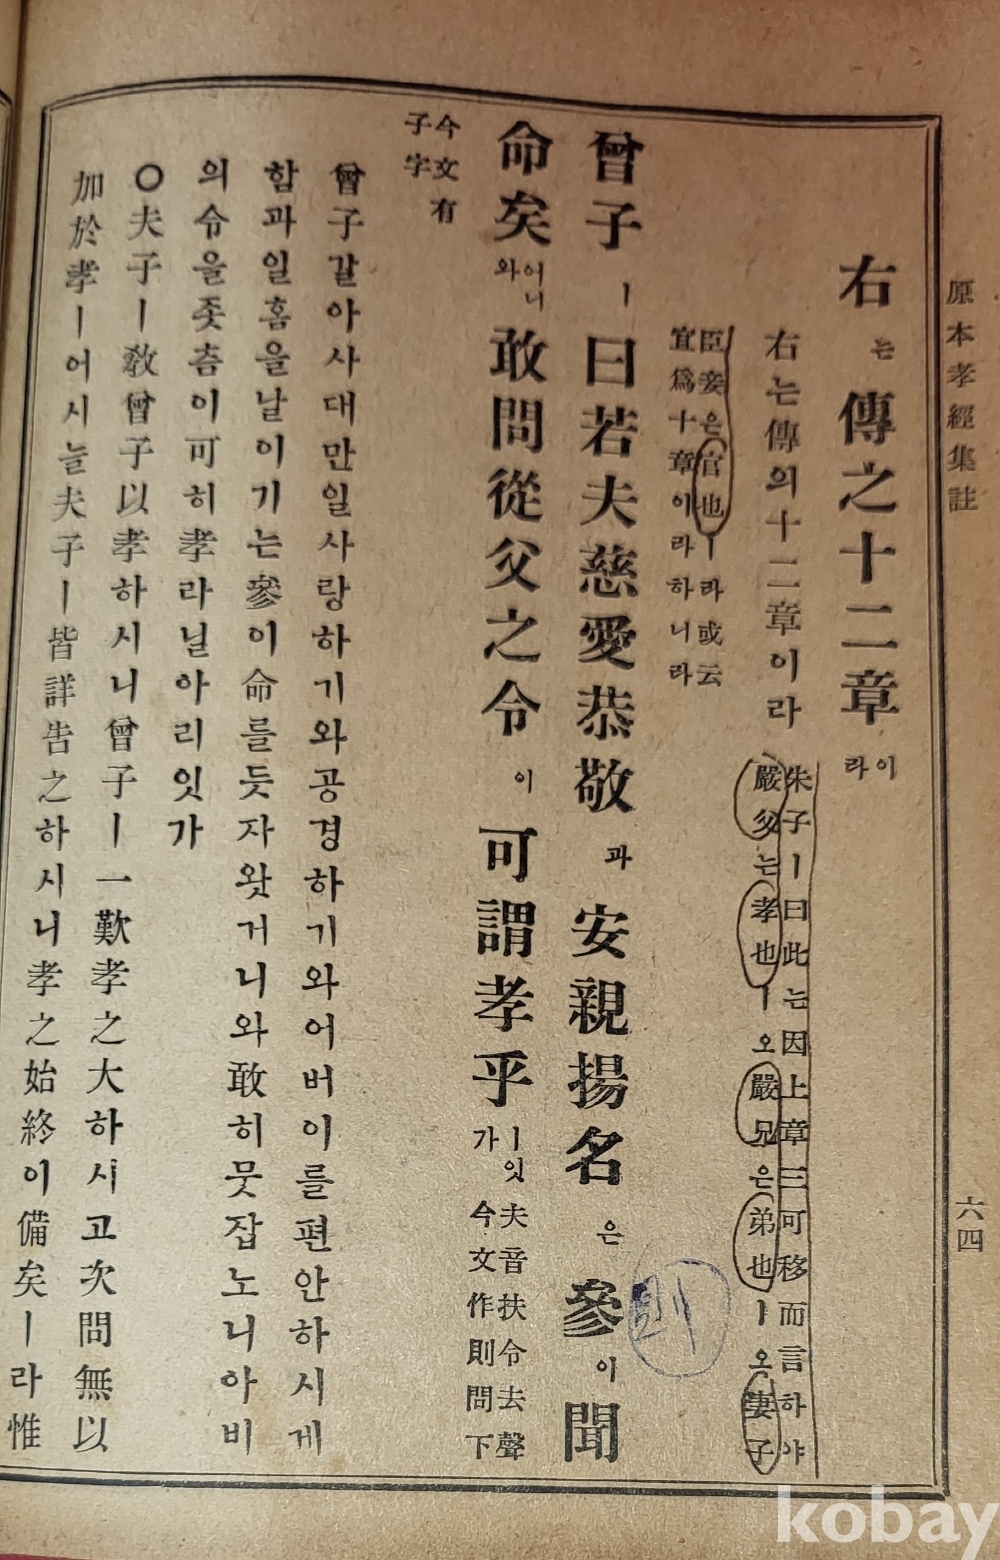 原本孝經集註
六四
右는傳之十二章이라
右는傳의十二章이라
朱子ㅣ曰此는因上章三可移而言하야
嚴父는孝也ㅣ오嚴兄은弟也ㅣ오妻子
臣妾은官也ㅣ라或云
宜爲十章이라하니라
曾子ㅣ曰若夫慈愛恭敬과安親揚名은參이聞
命矣어니와敢問從父之令이可謂孝乎ㅣ잇가
夫音扶令去聲
今文作則問下
今文有
子字
曾子갈아사대만일사랑하기와공경하기와어버이를편안하시게
함과일홈을날이기는參이命를듯자왓거니와敢히뭇잡노니아비
의令을좃츰이可히孝라닐아리잇가
○夫子ㅣ敎曾子以孝하시니曾子ㅣ一歎孝之大하시고次問無以
加於孝ㅣ어시늘夫子ㅣ皆詳告之하시니孝之始終이備矣ㅣ라惟
則
kobay